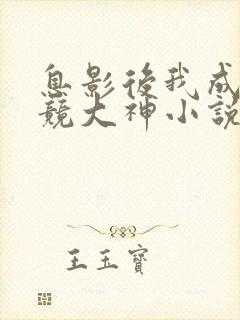 息影後我成
競大神小說
王玉寶